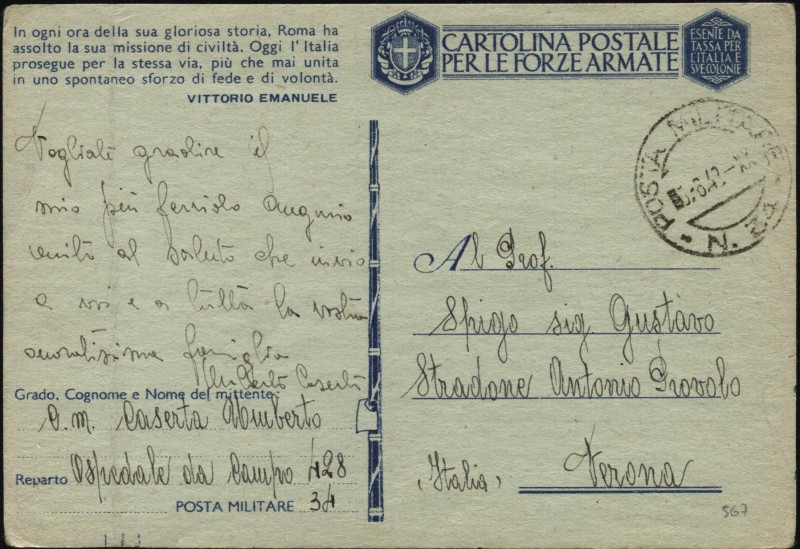 In ogni ora della sua gloriosa storia, Roma ha
assolto la sua missione di civiltà. Oggi l'Italia
prosegue per la stessa via, più che mai unita
in uno spontaneo sforzo di fede e di volontà.
VITTORIO EMANUELE
CARTOLINA POSTALE
PER LE FORZE ARMATE
ESENTE DA
TASSA PER
L'ITALIA E
SVE COLONIE
POSTA MILITARE
N.
Vogliate gradire il
mio più fervido augurio
unito al saluto che invio
a voi e a tutta la vostra
famiglia
Umberto Caserta
Grado, Cognome e Nome del mittente:
C.M. Caserta Umberto
Reparto Ospedale da Campo 428
POSTA MILITARE 34
Al Prof.
Spigo sig. Gustavo
Stradone Antonio Provolo
(Italia) Verona
567